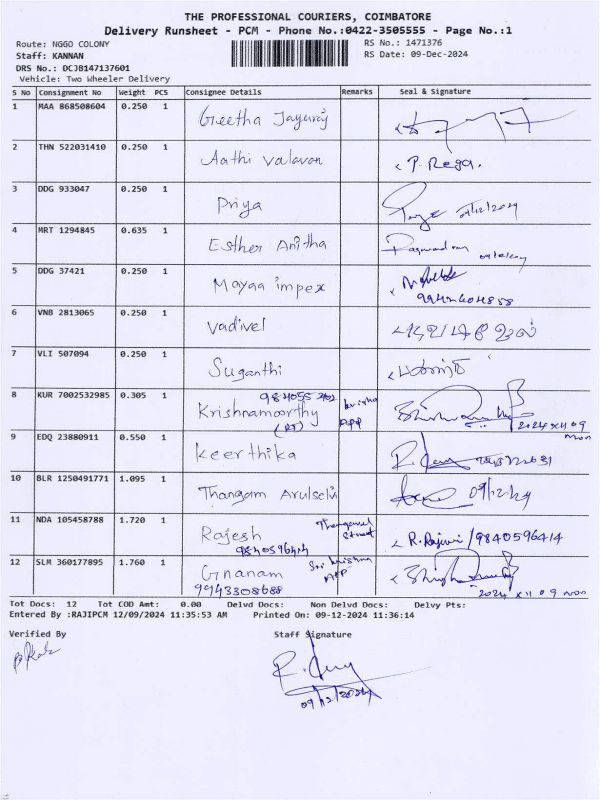 THE PROFESSIONAL COURIERS, COIMBATORE
Delivery Runsheet - PCM - Phone No.:0422-3505555 - Page No.:1
Route: NGGO COLONY
RS No.: 1471376
Staff: KANNAN
RS Date: 09-Dec-2024
DRS No.: DCJB147137601
Vehicle: Two Wheeler Delivery
S No Consignment No Weight PCS Consignee Details Remarks Seal & Signature
1 MAA 868508604 0.250 1 Geetha Jayaraj
2 THN 522031410 0.250 1 Aathi valavan P. Rega.
3 DDG 933047 0.250 1 Priya 09/12/2024
4 MRT 1294845 0.635 1 Esther Anitha
5 DDG 37421 0.250 1 Mayaa impex
9942604858
6 VNB 2813065 0.250 1 Vadivel
7 VLI 507094 0.250 1 Suganthi
8 KUR 7002532985 0.305 1 Krishnamoorthy
2024 XII 09
mon
9 EDQ 23880911 0.550 1 Keerthika
10 BLR 1250491771 1.095 1 Thangam Arulselvi 09/12/24
11 NDA 105458788 1.720 1 Rajesh Street R. Rajini / 9840596414
9840596414
12 SLM 360177895 1.760 1 Gnanam Sri krishna App
9943308688 2024 XII 09 mon
Tot Docs: 12 Tot COD Amt: 0.00 Delvd Docs: Non Delvd Docs: Delvy Pts:
Entered By :RAJIPCM 12/09/2024 11:35:53 AM Printed On: 09-12-2024 11:36:14
Verified By
Staff Signature
09/12/2024